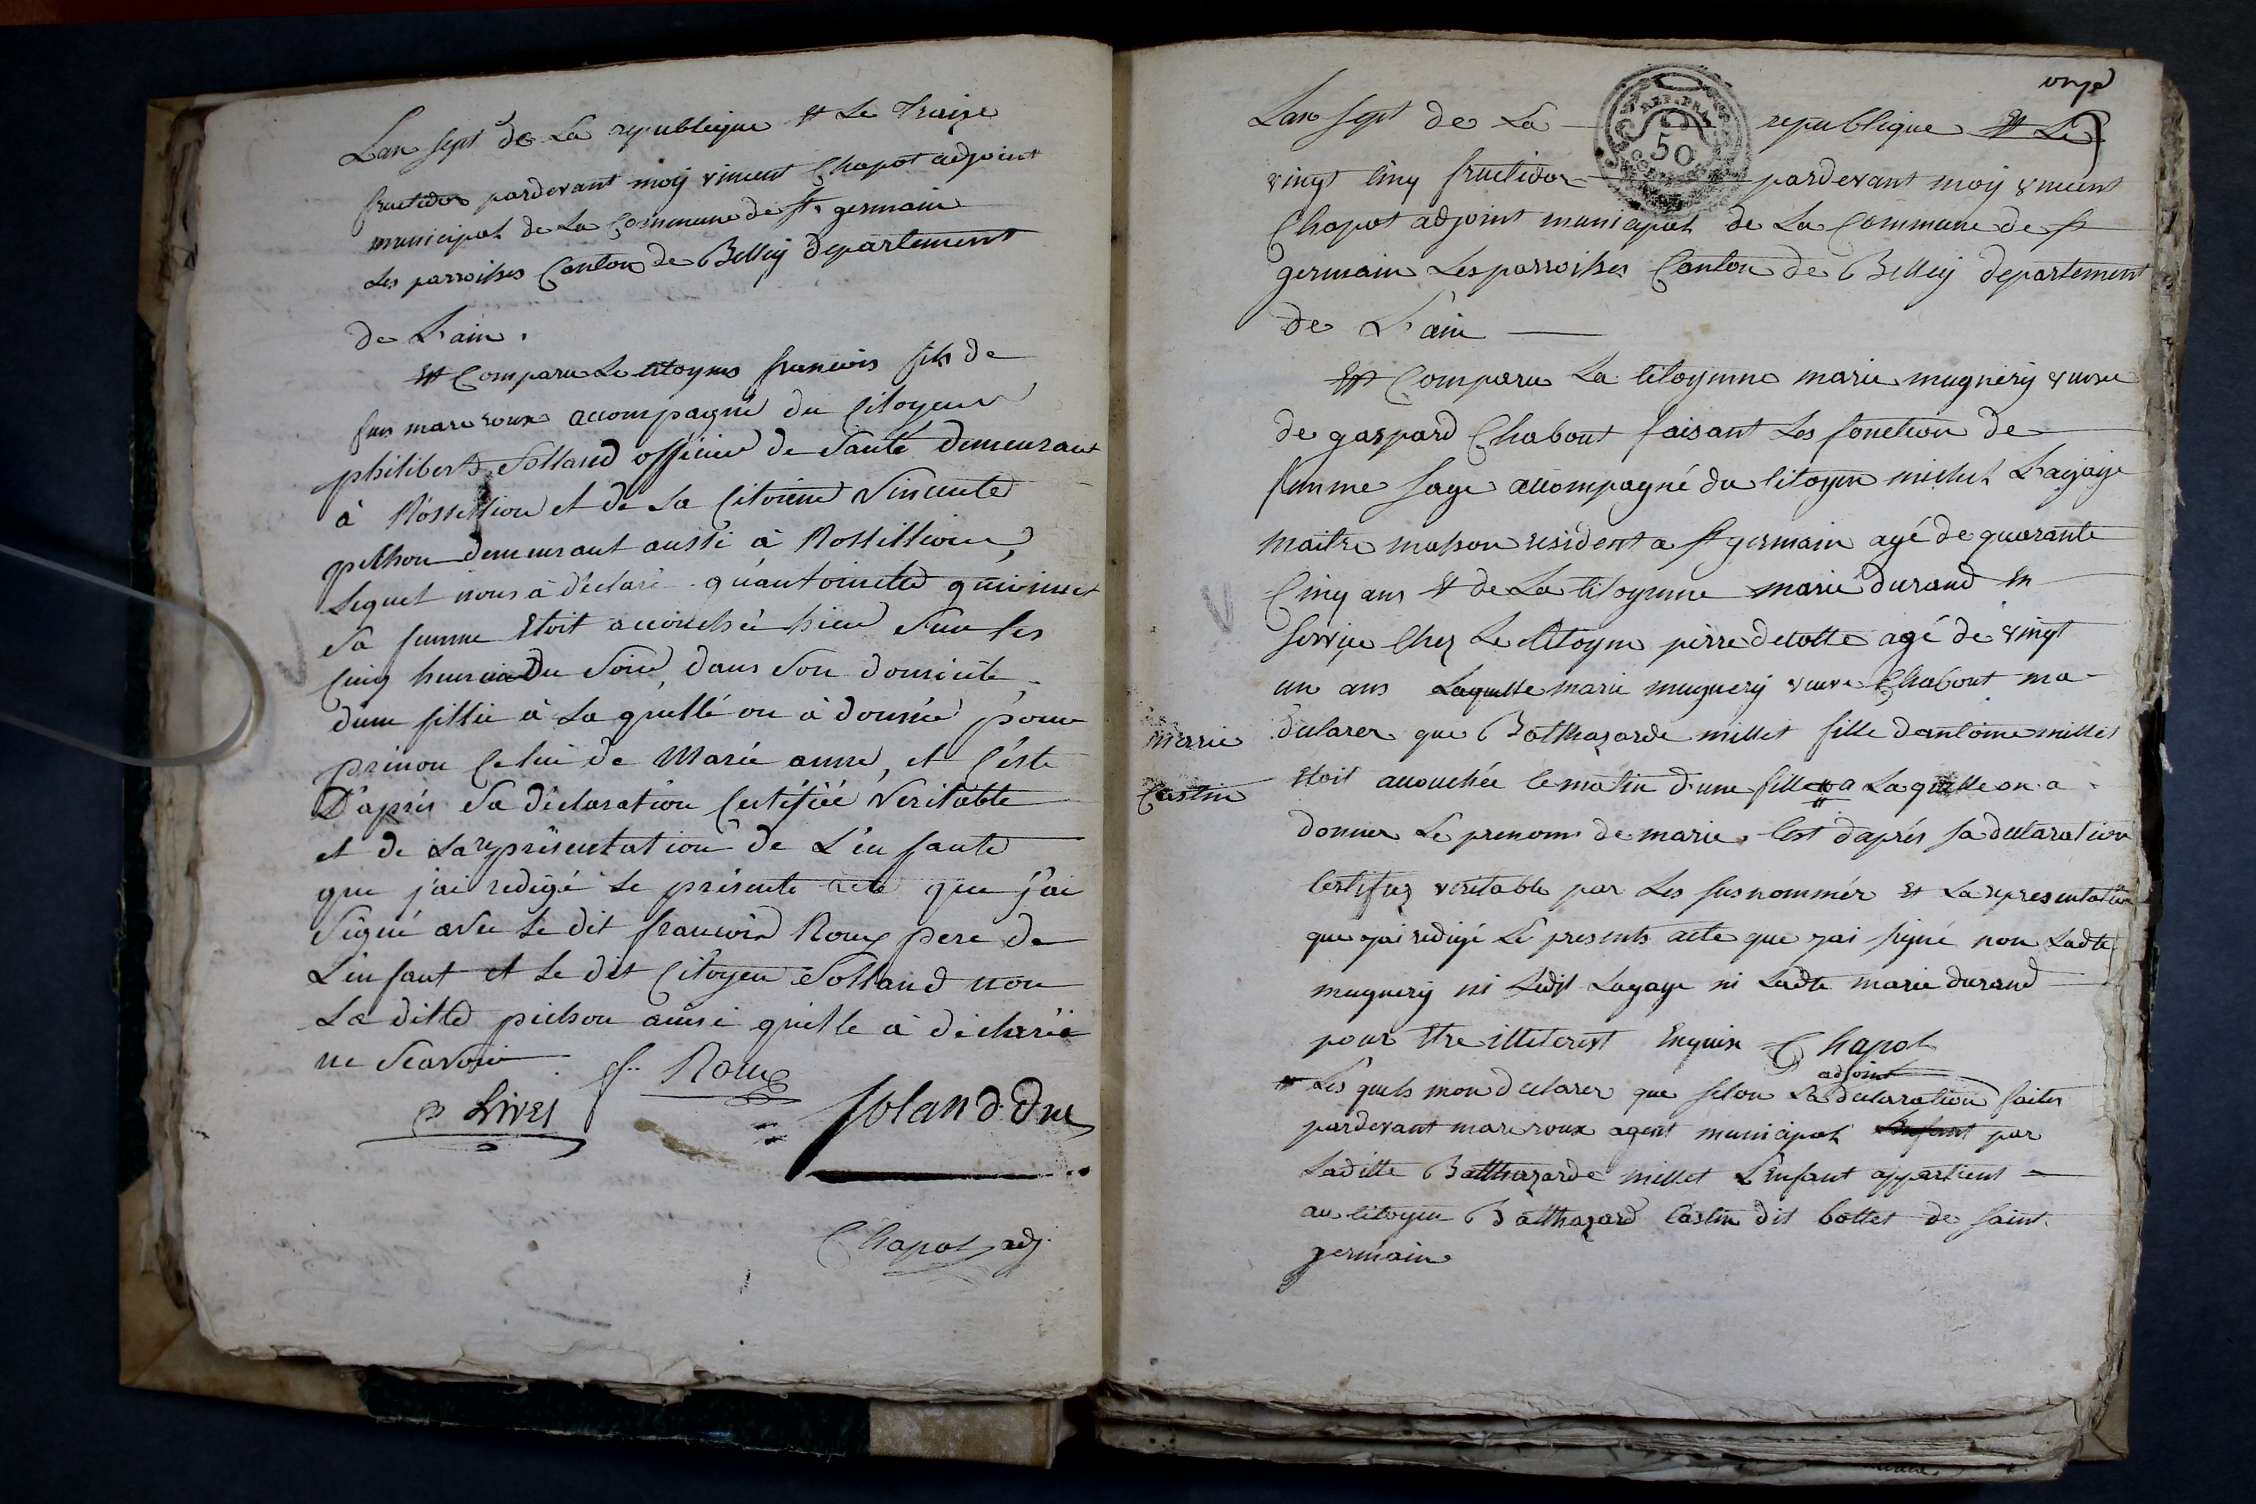 Lan sept de La republique et Le Traize
fructidor pardevant moy vincent Chapot adjoint
municipal de La Commune de St. germain
Les parroisses Canton de Belley departement
de L'ain.
Est Comparu Le citoyens francois fils de
feu marc roux accompagné du Citoyen
philibert Solland officier de Santé demeurant
à Rossillion et de la Citoiene Vincente
pithon demeurant aussi à Rossillion,
Lequel nous à déclaré qu'antoinette
Sa femme Etoit accouchéé hier Sur les
Cinq heures Du Soir, dans Son domicile
dune fillie à La quellé on à donnée pour
prénon Celui de Marie anne, et C'este
D'aprés Sa déclaration Certifiéé Veritable
et de La représentation de L'enfante
que j'ai redigé Le présente acte que j'ai
Signé avec Le dit francois Roux pere de
L'enfant et Le dit Citoyen Solland non
La ditte pichon ainsi qu'elle à déclaréé
ne Scavoir
f.. Roux
Livet
Soland
Chapot adj.
onze
Lan sept de La republique Et Le
REP. FRA
50
vingt Cinq fructidor pardevant moy vincent
Chapot adjoint municipal de La Commune de St
germain Les parroisses Canton de Belley departement
de L'ain
Est Comparu La Citoyenne marie mugnery veuve
de gaspard Chabout faisant Les fonction de
femme Sage accompagné du Citoyen michel Lagaye
maitre masson resident a St germain agé de quarante
Cinq ans et de La Citoyenne marie durand En
Service Chez Le Citoyen pierre decotte agé de vingt
un ans Laquelle marie mugnery veuve Chabout ma
declarer que Balthazarde millet fille dantoine millet
marie
Castin
Etoit accouchée ce matin d'une fille a La quelle on a
donner Le prenom de marie. Cest d'aprés sa declaration
Certifiez veritable par Les susnommér et La representation
que jai redigé Le presents acte que jai signé non Ladte
mugnery ni Ledit Lagaye ni Ladte marie durand
pour Etre illiterest Enquix Chapot
adjoint
Les quels mon declarer que selon La declaration faites
pardevant marc roux agent municipal Lenfant par
Laditte Balthazarde millet L'enfant appartient
au citoyen Balthazard Castin dit bottet de saint
germain